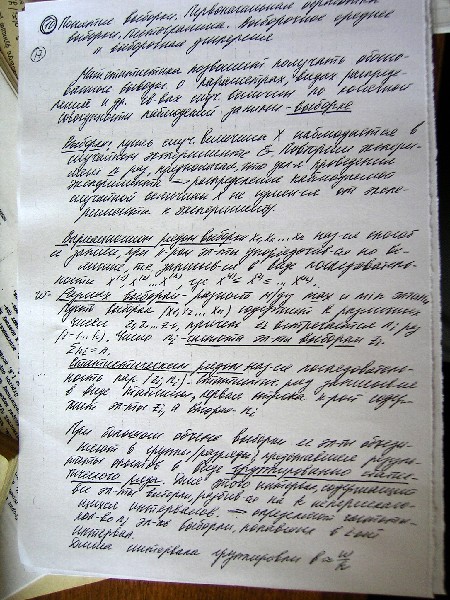 Понятие выборки. Первоначальная обработка
выборки. Гистограмма. Выборочное среднее
и выборочная дисперсия
Мат. статистика позволяет получать обосно-
ванные выводы о параметрах, видах распреде-
ления и др. св-вах случ. величины по конечной
совокупности наблюдений за ними - выборке
Выборка: пусть случ. величина X наблюдается в
случайном эксперименте E. Повторим экспери-
мент n раз, предполагая, что усл-я проведения
эксперимента распределение наблюдаемой
случайной величины X не меняется от экспе-
римента к эксперименту.
Вариационным рядом выборки x₁, x₂ ... xₙ наз-ся способ
её записи, при к-ром эл-ты упорядочив-ся по ве-
личине, т.е. записыв-ся в виде последователь-
ности x⁽¹⁾, x⁽²⁾ ... x⁽ⁿ⁾, где x⁽¹⁾ ≤ x⁽²⁾ ≤ ... x⁽ⁿ⁾.
Размах выборки - разность м/ду max и min
Пусть выборка (x₁, x₂ ... xₙ) содержит k различных
чисел z₁, z₂ ... zₖ, причём zᵢ встречается nᵢ раз
(i=1...k). Число nᵢ - частота эл-та выборки zᵢ.
Σnᵢ = n.
Статистическим рядом наз-ся последователь-
ность пар (zᵢ, nᵢ). ряд записываем
в виде таблицы, первая строка к-рой содер-
жит эл-ты zᵢ, а вторая - nᵢ
При большом объёме выборки её эл-ты объеди-
няют в группы (разряды), представляя резуль-
таты опытов в виде группированного статис-
тического ряда. Для этого интервал, содержащий
все эл-ты выборки, разбив-ся на k непересекаю-
щихся интервалов. определяют частоты -
кол-во nᵢ эл-тов выборки, попавших в i-ый
интервал.
Длина интервала группировки b = ω/k